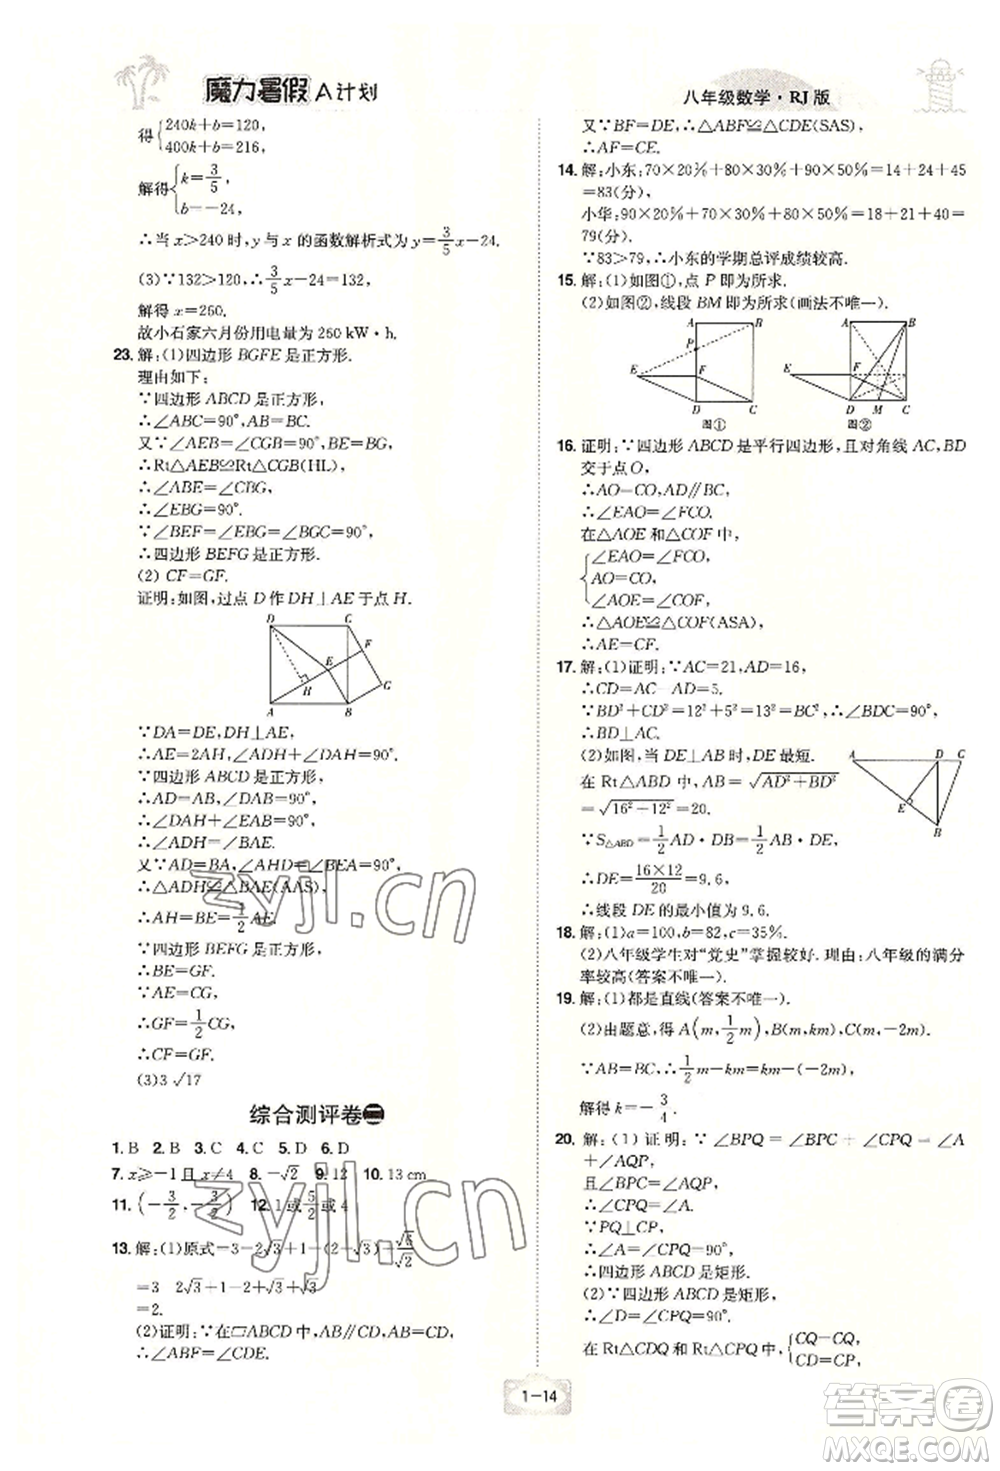 魔力暑假 A计划
八年级数学·RJ版
得{240k+b=120,
400k+b=216,
解得{k=3/5,
b=-24,
∴当x>240时,y与x的函数解析式为y=3/5x-24.
(3)∵132>120,∴3/5x-24=132,
解得x=260.
故小石家六月份用电量为250 kW·h.
23. 解:(1)四边形BGFE是正方形.
理由如下:
∵四边形ABCD是正方形,
∴∠ABC=90°,AB=BC.
又∵∠AEB=∠CGB=90°,BE=BG,
∴Rt△AEB≌Rt△CGB(HL),
∴∠ABE=∠CBG,
∴∠EBG=90°.
∵∠BEF=∠EBG=∠BGC=90°,
∴四边形BEFG是正方形.
(2) CF=GF.
证明:如图,过点D作DH⊥AE于点H.
D C F E H G A B
∵DA=DE,DH⊥AE,
∴AE=2AH,∠ADH+∠DAH=90°.
∵四边形ABCD是正方形,
∴AD=AB,∠DAB=90°,
∴∠DAH+∠EAB=90°,
∴∠ADH=∠BAE.
又∵AD=BA,∠AHD=∠BEA=90°,
∴△ADH≌△BAE(AAS),
∴AH=BE=1/2AE.
∵四边形BEFG是正方形,
∴BE=GF.
∵AE=CG,
∴GF=1/2CG,
∴CF=GF.
(3)3√17
综合测评卷二
1. B 2. B 3. C 4. C 5. D 6. D
7. x≥-1且x≠4 8. -√2 9. 12 10. 13 cm
11. (-3/2,-3/2) 12. 1或5/2或4
13. 解:(1)原式=3-2√3+1-(2-√3)+√6/√2
=3-2√3+1-2+√3+√3
=2.
(2)证明:∵在▱ABCD中,AB∥CD,AB=CD,
∴∠ABF=∠CDE.
又∵BF=DE,∴△ABF≌△CDE(SAS),
∴AF=CE.
14. 解:小东:70×20%+80×30%+90×50%=14+24+45
=83(分),
小华:90×20%+70×30%+80×50%=18+21+40=
79(分).
∵83>79,∴小东的学期总评成绩较高.
15. 解:(1)如图①,点P即为所求.
(2)如图②,线段BM即为所求(画法不唯一).
A B P E F D C
图①
A B E F D M C
图②
16. 证明:∵四边形ABCD是平行四边形,且对角线AC,BD
交于点O,
∴AO=CO,AD∥BC,
∴∠EAO=∠FCO.
在△AOE和△COF中,
{∠EAO=∠FCO,
AO=CO,
∠AOE=∠COF,
∴△AOE≌△COF(ASA),
∴AE=CF.
17. 解:(1)证明:∵AC=21,AD=16,
∴CD=AC-AD=5.
∵BD²+CD²=12²+5²=13²=BC²,∴∠BDC=90°,
∴BD⊥AC.
(2)如图,当DE⊥AB时,DE最短.
在Rt△ABD中,AB=√AD²+BD²
=√16²-12²=20.
∵S△ABD=1/2AD·DB=1/2AB·DE,
∴DE=16×12/20=9.6,
∴线段DE的最小值为9.6.
A D C E B
18. 解:(1)a=100,b=82,c=35%.
(2)八年级学生对“党史”掌握较好.理由:八年级的满分
率较高(答案不唯一).
19. 解:(1)都是直线(答案不唯一).
(2)由题意,得A(m,1/2m),B(m,km),C(m,-2m).
∵AB=BC,∴1/2m-km=km-(-2m),
解得k=-3/4.
20. 解:(1)证明:∵∠BPQ=∠BPC+∠CPQ=∠A
+∠AQP,
且∠BPC=∠AQP,
∴∠CPQ=∠A.
∵PQ⊥CP,
∴∠A=∠CPQ=90°,
∴四边形ABCD是矩形.
(2)∵四边形ABCD是矩形,
∴∠D=∠CPQ=90°.
在Rt△CDQ和Rt△CPQ中,{CQ=CQ,
CD=CP,
1-14
zyjl.cn
zyjl.cn
答案卷
MXQE.COM